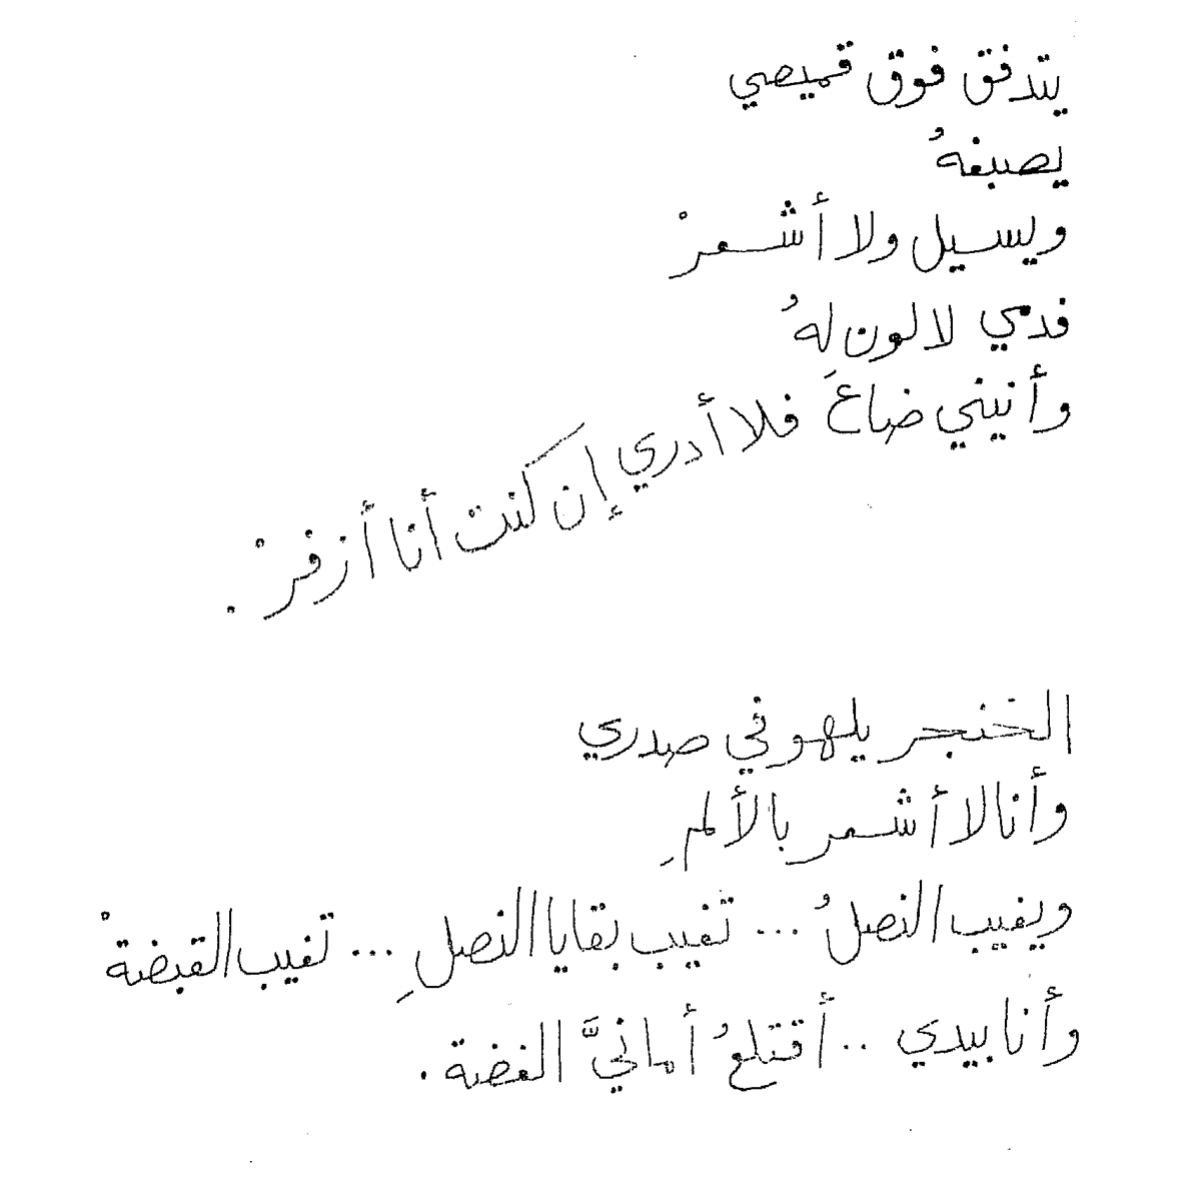 يتدفق فوق قميصي
يصبغهُ
ويسيل ولا أشعرْ
فدمي لا لون لهُ
وأنيني ضاعَ فلا أدري إن كنت أنا أزفرْ .
الخنجر يلهو في صدري
وأنا لا أشعر بالألمِ
ويغيب النصلُ ... تغيب بقايا النصلِ ... تغيب القبضةْ
وأنا بيدي .. أقتلعُ أمانيَّ الغضة .